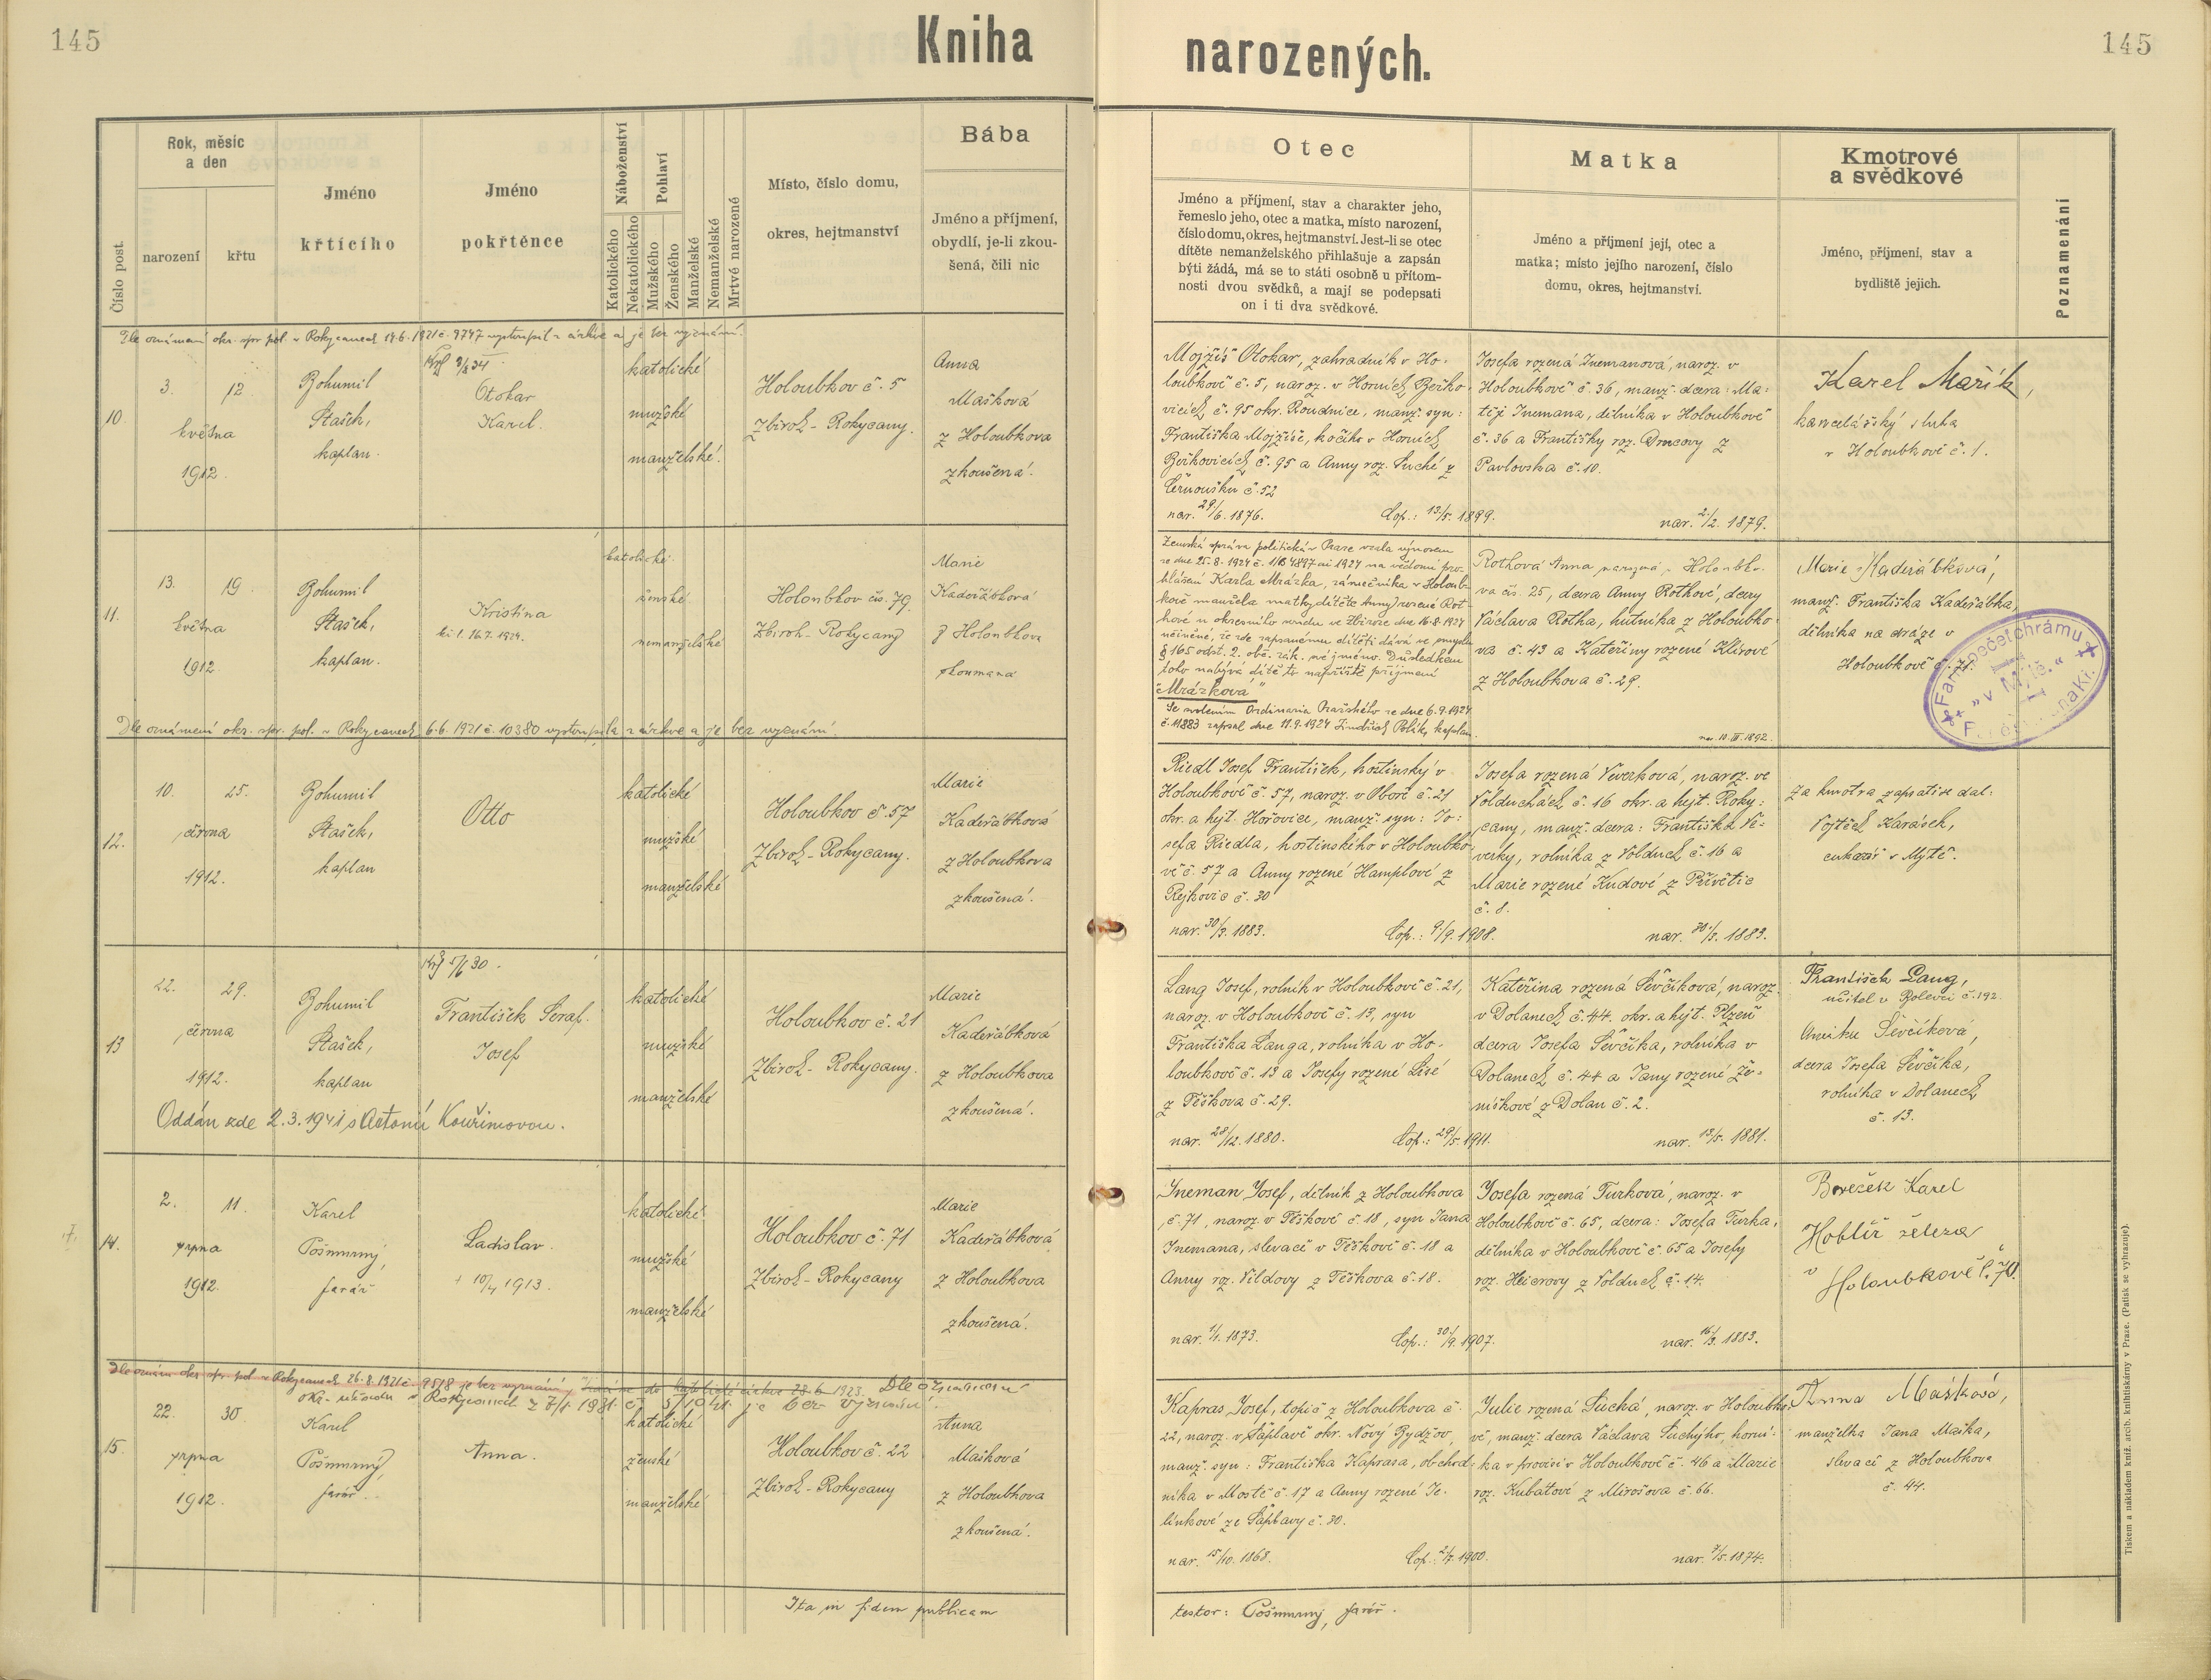 145
Kniha narozených.
145
Číslo post.
Rok, měsíc
a den
narození
křtu
Jméno
křtícího
Jméno
pokřtěnce
Náboženství
Katolického
Nekatolického
Pohlaví
Mužského
Ženského
Manželské
Nemanželské
Mrtvě narozené
Místo, číslo domu,
okres, hejtmanství
Bába
Jméno a příjmení,
obydlí, je-li zkou-
šená, čili nic
Otec
Jméno a příjmení, stav a charakter jeho,
řemeslo jeho, otec a matka, místo narození,
číslo domu, okres, hejtmanství. Jest-li se otec
dítěte nemanželského přihlašuje a zapsán
býti žádá, má se to státi osobně u přítom-
nosti dvou svědků, a mají se podepsati
on i ti dva svědkové.
Matka
Jméno a příjmení její, otec a
matka; místo jejího narození, číslo
domu, okres, hejtmanství.
Kmotrové
a svědkové
Jméno, příjmení, stav a
bydliště jejich.
Poznamenání
Dle oznámení okr. spr. pol. v Rokycanech 14.6.1921 č. 9747 vystoupil z církve a je bez vyznání.
10.
3. 12.
května
1912.
Bohumil
Stašek,
kaplan.
Otokar
Karel.
katolické
mužské
manželské.
Holoubkov č. 5
Zbiroh - Rokycany.
Anna
Mašková
z Holoubkova
zkoušená.
Mojžíš Otokar, zahradník v Ho-
loubkově č. 5, naroz. v Horních Beřko-
vicích č. 95 okr. Roudnice, manž. syn:
Františka Mojžíše, kočího v Horních
Beřkovicích č. 95 a Anny roz. Suché z
Černoušku č. 52
nar. 29/6. 1876. Cop.: 13/5. 1899.
Josefa rozená Inemanová, naroz. v
Holoubkově č. 36, manž. dcera: Ma-
těje Inemana, dělníka v Holoubkově
č. 36 a Františky roz. z
Pavlovska č. 10.
nar. 2/2. 1879.
Karel Mařík,
kancelářský sluha
v Holoubkově č. 1.
11.
13. 19.
května
1912.
Bohumil
Stašek,
kaplan.
Kristina
katolické
ženské
nemanželské
Holoubkov čs. 79.
Zbiroh - Rokycany
Marie
Kadeřábková
z Holoubkova
zkoumaná
Zemská správa politická v Praze vzala výnosem
ze dne 25.8.1924 č. 1924 na vědomí pro-
hlášení Karla Mrázka, zámečníka v Holoub-
kově manžela matky dítěte Anny rozené Rot-
hové u okresního soudu ve Zbiroze dne 16.8.1924
učiněné, že zde zapsanému dítěti dává ve smyslu
§ 165 odst. 2. obč. zák. své jméno. Důsledkem
toho nabývá dítě to napříště příjmení
"Mrázková"
Se svolením Ordinaria Pražského ze dne 6.9.1924
č. 11883 zapsal dne 11.9.1924 Jindřich Polák, kaplan.
Rothová Anna narozená v Holoubko-
va čs. 25, dcera Anny Rothové, dcery
Václava Rotha, hutníka z Holoubko-
va č. 43 a Kateřiny rozené Klírové
z Holoubkova č. 29.
nar. 10.III.1892.
Marie Kadeřábková,
manž. Františka Kadeřábka,
dělníka na dráze v
Holoubkově č. 71.
Dle oznámení okr. spr. pol. v Rokycanech 6.6.1921 č. 10380 vystoupila z církve a je bez vyznání.
12.
10. 25.
června
1912.
Bohumil
Stašek,
kaplan
Otto
katolické
mužské
manželské
Holoubkov č. 57
Zbiroh - Rokycany.
Marie
Kadeřábková
z Holoubkova
zkoušená.
Riedl Josef František, hostinský v
Holoubkově č. 57, naroz. v Oboře č. 21
okr. a hejt. Hořovice, manž. syn: Jo-
sefa Riedla, hostinského v Holoubko-
vě č. 57 a Anny rozené Hamplové z
Rejkovic č. 30
nar. 30/3. 1883. Cop.: 9/9. 1908.
Josefa rozená Veverková, naroz. ve
Volduchách č. 16 okr. a hejt. Roky-
cany, manž. dcera: Františka Ve-
verky, rolníka z Volduch č. 16 a
Marie rozené Kudové z Přívětic
č. 8.
nar. 30/3. 1883.
Za kmotra zapsati se dal:
Vojtěch Karásek,
cukrář v Mýtě.
13
22. 29.
června
1912.
Bohumil
Stašek,
kaplan
František Seraf.
Josef
katolické
mužské
manželské
Holoubkov č. 21
Zbiroh - Rokycany.
Marie
Kadeřábková
z Holoubkova
zkoušená.
Oddán zde 2.3.1941 s Antonií Kouřimovou.
Lang Josef, rolník v Holoubkově č. 21,
naroz. v Holoubkově č. 13, syn
Františka Langa, rolníka v Ho-
loubkově č. 13 a Josefy rozené Lisé
z Těškova č. 29.
nar. 28/12. 1880. Cop.: 29/5. 1911.
Kateřina rozená Ševčíková, naroz.
v Dolanech č. 44. okr. a hejt. Plzeň
dcera Josefa Ševčíka, rolníka v
Dolanech č. 44 a Jany rozené Že-
níškové z Dolan č. 2.
nar. 13/5. 1881.
František Lang,
učitel v Bolevci č. 192.
Ševčíková,
dcera Josefa Ševčíka,
rolníka v Dolanech
č. 13.
14.
2. 11.
srpna
1912.
Karel
Pošmurný,
farář
Ladislav.
+ 10/4 1913.
katolické
mužské
manželské
Holoubkov č. 71
Zbiroh - Rokycany
Marie
Kadeřábková
z Holoubkova
zkoušená.
Ineman Josef, dělník z Holoubkova
č. 71, naroz. v Těškově č. 18, syn Jana
Inemana, slevače v Těškově č. 18 a
Anny roz. Vildovy z Těškova č. 18.
nar. 1/1. 1873. Cop.: 30/9. 1907.
Josefa rozená Turková, naroz. v
Holoubkově č. 65, dcera: Josefa Turka,
dělníka v Holoubkově č. 65 a Josefy
roz. Heierovy z Volduch č. 14.
nar. 16/3. 1883.
Karel
Hoblíř železa
v Holoubkově č. 70.
Dle oznám. okr. spr. pol. v Rokycanech 26.8.1921 č. 9518 je bez vyznání, do katolické církve 28.6.1923. Dle oznámení
okr. úřadu v Rokycanech z 7/1. 1931. je bez vyznání.
15.
22. 30.
srpna
1912.
Karel
Pošmurný,
farář.
Anna.
katolické
ženské
manželské
Holoubkov č. 22
Zbiroh - Rokycany
Anna
Mašková
z Holoubkova
zkoušená.
Kapras Josef, topič z Holoubkova č.
22, naroz. v Šaplavě okr. Nový Bydžov,
manž. syn: Františka Kaprasa, obchod-
níka v Mostě č. 17 a Anny rozené Je-
línkové ze Šaplavy č. 30.
nar. 15/10. 1868. Cop.: 2/7. 1900.
Julie rozená Suchá, naroz. v Holoubko-
vě, manž. dcera Václava Suchýho, horní-
ka v provisi v Holoubkově č. 46 a Marie
roz. Kubátové z Mirošova č. 66.
nar. 7/5. 1874.
Anna Mašková,
manželka Jana Maška,
slevače z Holoubkova
č. 44.
Ita in fidem publicam
testor: Pošmurný, farář.
Tiskem a nákladem kníž. arcib. knihtiskárny v Praze. (Patisk se vyhrazuje).